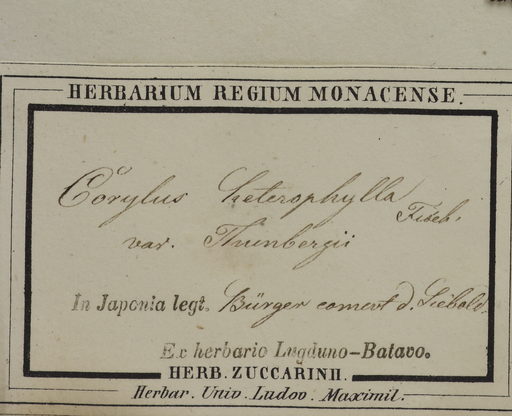 HERBARIUM REGIUM MONACENSE.
Corylus heterophylla Fisch.
var. Thunbergii
In Japonia legt. Bürger d. Siebold.
Ex herbario Lugduno-Batavo.
HERB. ZUCCARINII.
Herbar. Univ. Ludov. Maximil.